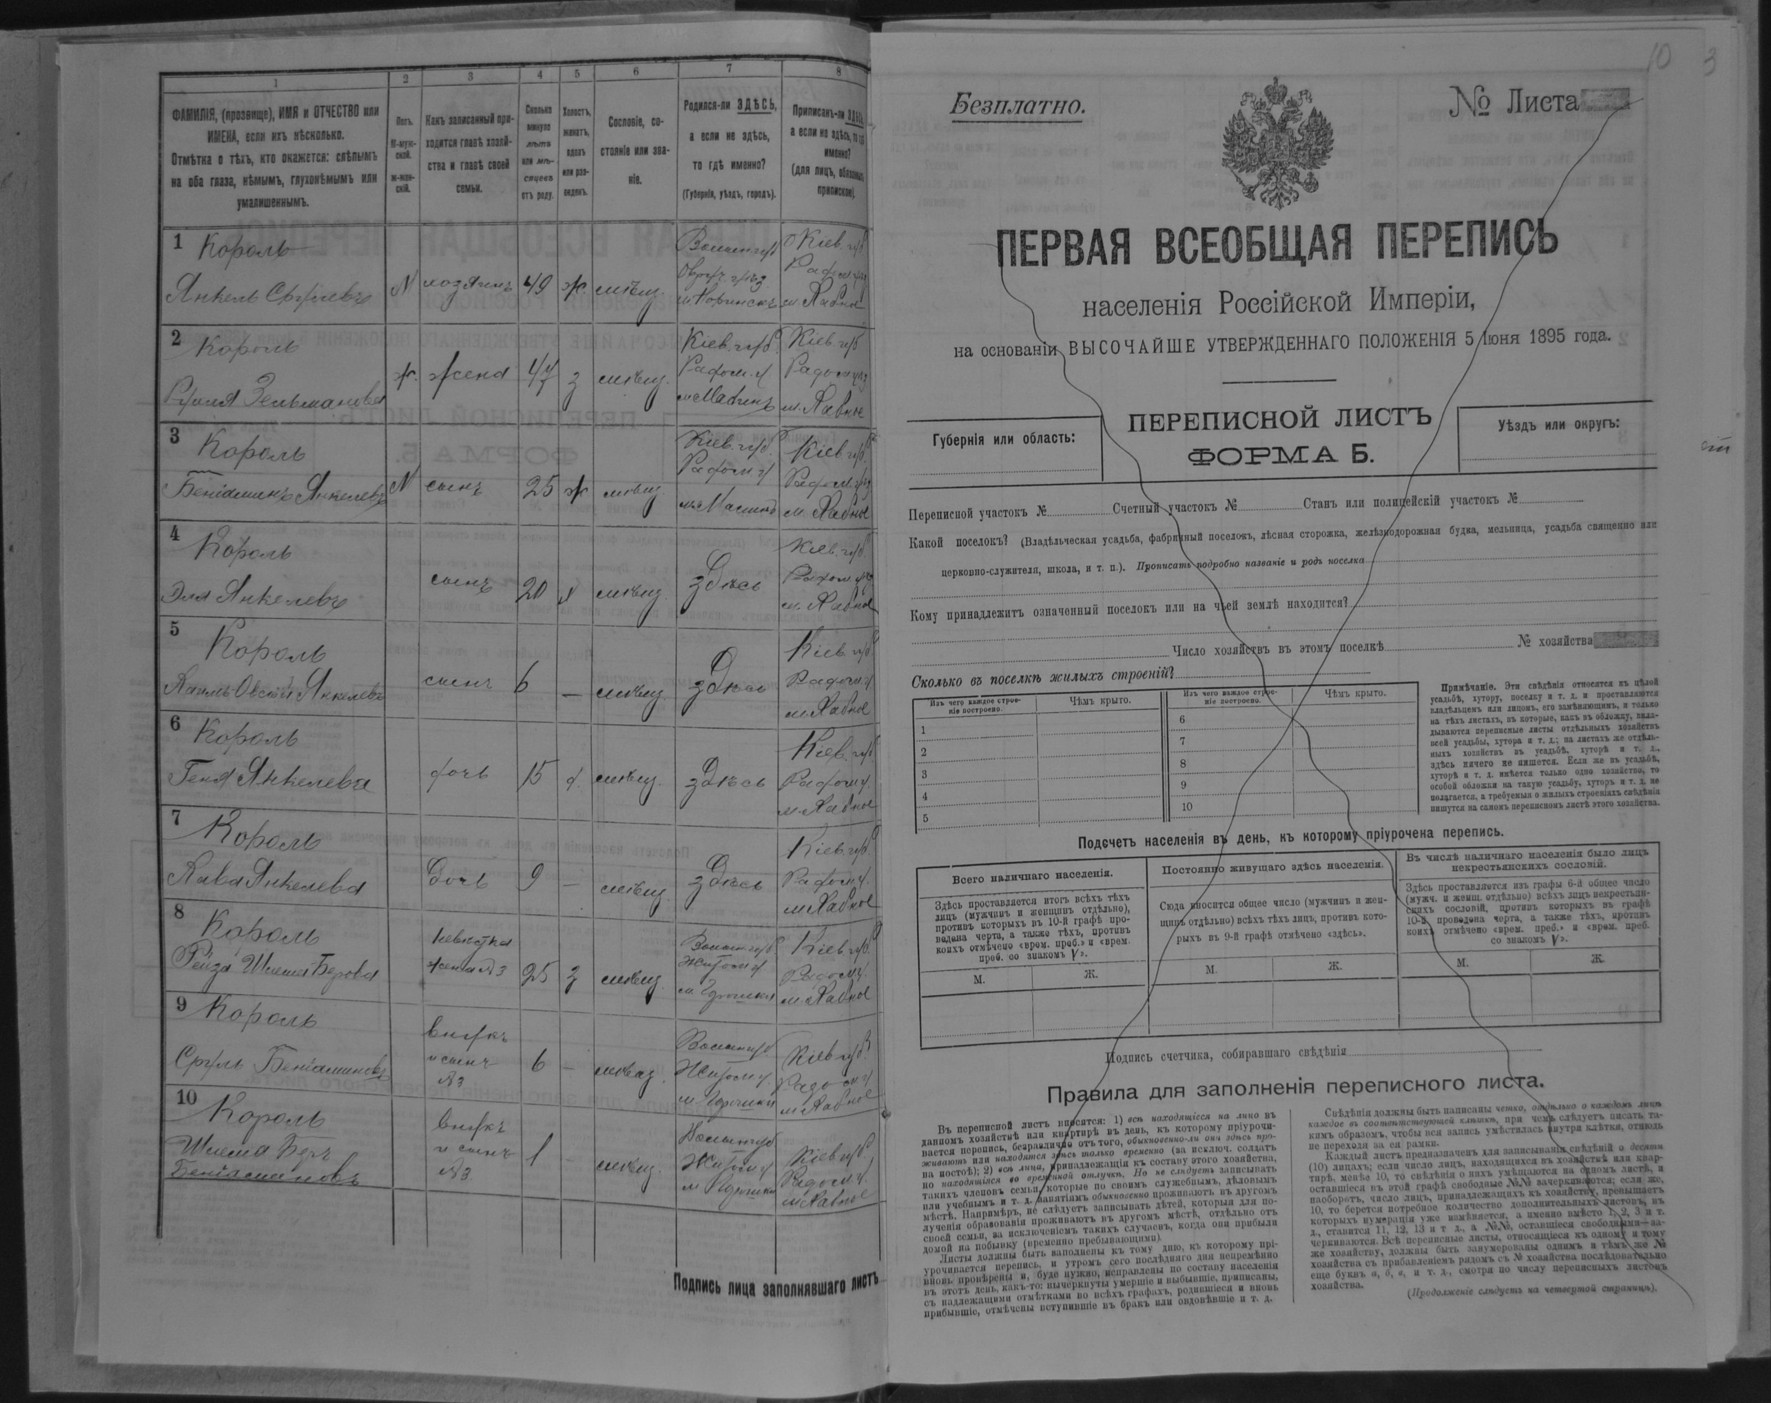 1 2 3 4 5 6 7 8
ФАМИЛІЯ, (прозвище), ИМЯ и ОТЧЕСТВО или
ИМЕНА, если ихъ нѣсколько.
Отмѣтка о тѣхъ, кто окажется: слѣпымъ
на оба глаза, нѣмымъ, глухонѣмымъ или
умалишеннымъ.
Полъ.
М-муж-
ской.
ж-жен-
скій.
Какъ записанный при-
ходится главѣ хозяй-
ства и главѣ своей
семьи.
Сколько
минуло
лѣтъ
или мѣ-
сяцевъ
отъ роду.
Холостъ,
женатъ,
вдовъ
или раз-
веденъ.
Сословіе, со-
стояніе или зва-
ніе.
Родился-ли ЗДѢСЬ,
а если не здѣсь,
то гдѣ именно?
(Губернія, уѣздъ, городъ).
Приписанъ-ли ЗДѢСЬ,
а если не здѣсь, то гдѣ
именно?
(для лицъ, обязанныхъ
припискою)
1 Король
Янкель Сруlевъ М хозяинъ 49 ж. мѣщ.
2 Король
Зельмановна ж. жена 47 з мѣщ.
Кіев. губ. Радом. у
3 Король
Беніаминъ Янкелевъ М сынъ 25 ж мѣщ
4 Король
Эля Янкелевъ сынъ 20 х мѣщ здѣсь
5 Король
Янкелевъ сынъ 6 — мѣщ здѣсь
6 Король
Геня Янкелева дочь 15 д. мѣщ. здѣсь
7 Король
Хава Янкелева дочь 9 — мѣщ. здѣсь
8 Король
Рейза Берова невѣстка
жена №3 25 з мѣщ.
9 Король
Сруль Беніаминовъ внукъ
и сынъ
№3 6 — мѣщ.
10 Король
Шлема Беръ
Беніаминовъ внукъ
и сынъ
№3 1 — мѣщ.
Подпись лица заполнявшаго листъ
10 3
Безплатно.
№ Листа
ПЕРВАЯ ВСЕОБЩАЯ ПЕРЕПИСЬ
населенія Россійской Имперіи,
на основаніи ВЫСОЧАЙШЕ УТВЕРЖДЕННАГО ПОЛОЖЕНІЯ 5 Іюня 1895 года.
Губернія или область:
ПЕРЕПИСНОЙ ЛИСТЪ
ФОРМА Б.
Уѣздъ или округъ:
Переписной участокъ № Счетный участокъ № Станъ или полицейскій участокъ №
Какой поселокъ? (Владѣльческая усадьба, фабричный поселокъ, лѣсная сторожка, желѣзнодорожная будка, мельница, усадьба священно или
церковно-служителя, школа, и т. п.). Прописать подробно названіе и родъ поселка
Кому принадлежитъ означенный поселокъ или на чьей землѣ находится?
Число хозяйствъ въ этомъ поселкѣ № хозяйства
Сколько въ поселкѣ жилыхъ строеній?
Изъ чего каждое строе-
ніе построено. Чѣмъ крыто. Изъ чего каждое строе-
ніе построено. Чѣмъ крыто.
1 6
2 7
3 8
4 9
5 10
Примѣчаніе. Эти свѣдѣнія относятся къ цѣлой
усадьбѣ, хутору, поселку и т. д. и проставляются
владѣльцемъ или лицомъ, его замѣняющимъ, и только
на тѣхъ листахъ, въ которые, какъ въ обложку, вкла-
дываются переписные листы отдѣльныхъ хозяйствъ
всей усадьбы, хутора и т. д.; на листахъ же отдѣль-
ныхъ хозяйствъ въ усадьбѣ, хуторѣ и т. д.,
здѣсь ничего не пишется. Если же въ усадьбѣ,
хуторѣ и т. д. имѣется только одно хозяйство, то
особой обложки на такую усадьбу, хуторъ и т. д. не
полагается, а требуемыя о жилыхъ строеніяхъ свѣдѣнія
пишутся на самомъ переписномъ листѣ этого хозяйства.
Подсчетъ населенія въ день, къ которому пріурочена перепись.
Всего наличнаго населенія.
Здѣсь проставляется итогъ всѣхъ тѣхъ
лицъ (мужчинъ и женщинъ отдѣльно),
противъ которыхъ въ 10-й графѣ про-
ведена черта, а также тѣхъ, противъ
коихъ отмѣчено «врем. преб.» и «врем.
преб. со знакомъ V».
М. Ж.
Постоянно живущаго здѣсь населенія.
Сюда вносится общее число (мужчинъ и жен-
щинъ отдѣльно) всѣхъ тѣхъ лицъ, противъ кото-
рыхъ въ 9-й графѣ отмѣчено «здѣсь».
М. Ж.
Въ числѣ наличнаго населенія было лицъ
некрестьянскихъ сословій.
Здѣсь проставляется изъ графы 6-й общее число
(мужч. и женщ. отдѣльно) всѣхъ лицъ некрестьян-
скихъ сословій, противъ которыхъ въ графѣ
10-й проведена черта, а также тѣхъ, противъ
коихъ отмѣчено «врем. преб.» и «врем. преб.
со знакомъ V».
М. Ж.
Подпись счетчика, собиравшаго свѣдѣнія
Правила для заполненія переписного листа.
Въ переписной листъ вносятся: 1) всѣ находящіеся на лицо въ
данномъ хозяйствѣ или квартирѣ въ день, къ которому пріурочи-
вается перепись, безразлично отъ того, обыкновенно-ли они здѣсь про-
живаютъ или находятся здѣсь только временно (за исключ. солдатъ
на постоѣ); 2) всѣ лица, принадлежащія къ составу этого хозяйства,
но находящіяся во временной отлучкѣ. Но не слѣдуетъ записывать
такихъ членовъ семьи, которые по своимъ служебнымъ, дѣловымъ
или учебнымъ и т. д. занятіямъ обыкновенно проживаютъ въ другомъ
мѣстѣ. Напримѣръ, не слѣдуетъ записывать дѣтей, которыя для по-
лученія образованія проживаютъ въ другомъ мѣстѣ, отдѣльно отъ
своей семьи, за исключеніемъ такихъ случаевъ, когда они прибыли
домой на побывку (временно пребывающими).
Листы должны быть заполнены къ тому дню, къ которому прі-
урочивается перепись, и утромъ сего послѣдняго дня непремѣнно
вновь провѣрены и, буде нужно, исправлены по составу населенія
въ этотъ день, какъ-то: вычеркнуты умершіе и выбывшіе, приписаны,
съ надлежащими отмѣтками во всѣхъ графахъ, родившіеся и вновь
прибывшіе, отмѣчены вступившіе въ бракъ или овдовѣвшіе и т. д.
Свѣдѣнія должны быть написаны четко, отдѣльно о каждомъ лицѣ
каждое въ соотвѣтствующей клѣткѣ, при чемъ слѣдуетъ писать та-
кимъ образомъ, чтобы вся запись умѣстилась внутри клѣтки, отнюдь
не переходя за ея рамки.
Каждый листъ предназначенъ для записыванія свѣдѣній о десяти
(10) лицахъ; если число лицъ, находящихся въ хозяйствѣ или квар-
тирѣ, менѣе 10, то свѣдѣнія о нихъ умѣщаются на одномъ листѣ, и
оставшіеся въ этой графѣ свободные №№ зачеркиваются; если же,
наоборотъ, число лицъ, принадлежащихъ къ хозяйству, превышаетъ
10, то берется потребное количество дополнительныхъ листовъ, въ
которыхъ нумерація уже измѣняется, а именно вмѣсто 1, 2, 3 и т.
д., ставится 11, 12, 13 и т. д., а №№, оставшіеся свободными—за-
черкиваются. Всѣ переписные листы, относящіеся къ одному и тому
же хозяйству, должны быть занумерованы однимъ и тѣмъ же №
хозяйства съ прибавленіемъ рядомъ съ № хозяйства послѣдовательно
еще буквъ а, б, в, и т. д., смотря по числу переписныхъ листовъ
хозяйства.
(Продолженіе слѣдуетъ на четвертой страницѣ).